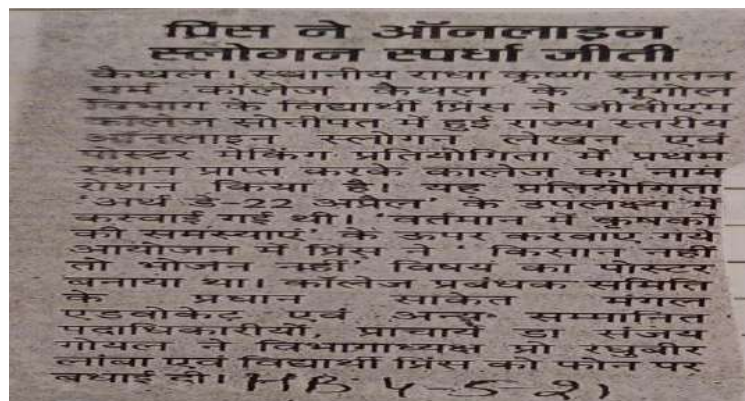 प्रिंस ने ऑनलाइन
स्लोगन स्पर्धा जीती
कैथल। स्थानीय राधा कृष्ण सनातन
धर्म कॉलेज कैथल के भूगोल
विभाग के विद्यार्थी प्रिंस ने जीवीएम
कॉलेज सोनीपत में हुई राज्य स्तरीय
ऑनलाइन स्लोगन लेखन एवं
पोस्टर मेकिंग प्रतियोगिता में प्रथम
स्थान प्राप्त करके कालेज का नाम
रोशन किया है। यह प्रतियोगिता
'अर्थ डे-22 अप्रैल' के उपलक्ष्य में
करवाई गई थी। 'वर्तमान में कृषकों
की समस्याएं' के ऊपर करवाए गये
आयोजन में प्रिंस ने 'किसान नहीं
तो भोजन नहीं' विषय का पोस्टर
बनाया था। कॉलेज प्रबंधक समिति
के प्रधान साकेत मंगल
एडवोकेट एवं अन्य सम्मानित
पदाधिकारीयों, प्राचार्य डा संजय
गोयल ने विभागाध्यक्ष प्रो रघुबीर
लांबा एवं विद्यार्थी प्रिंस को फोन पर
बधाई दी। HB 4-5-21